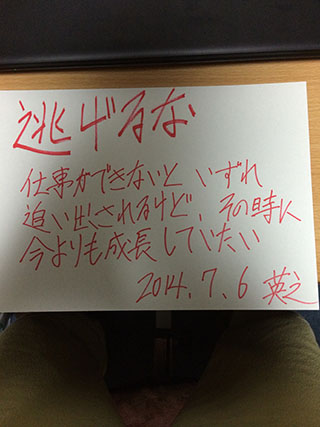 逃げるな
仕事ができないと いずれ
追い出されるけど、その時に
今よりも成長していたい
2014.7.6 英之